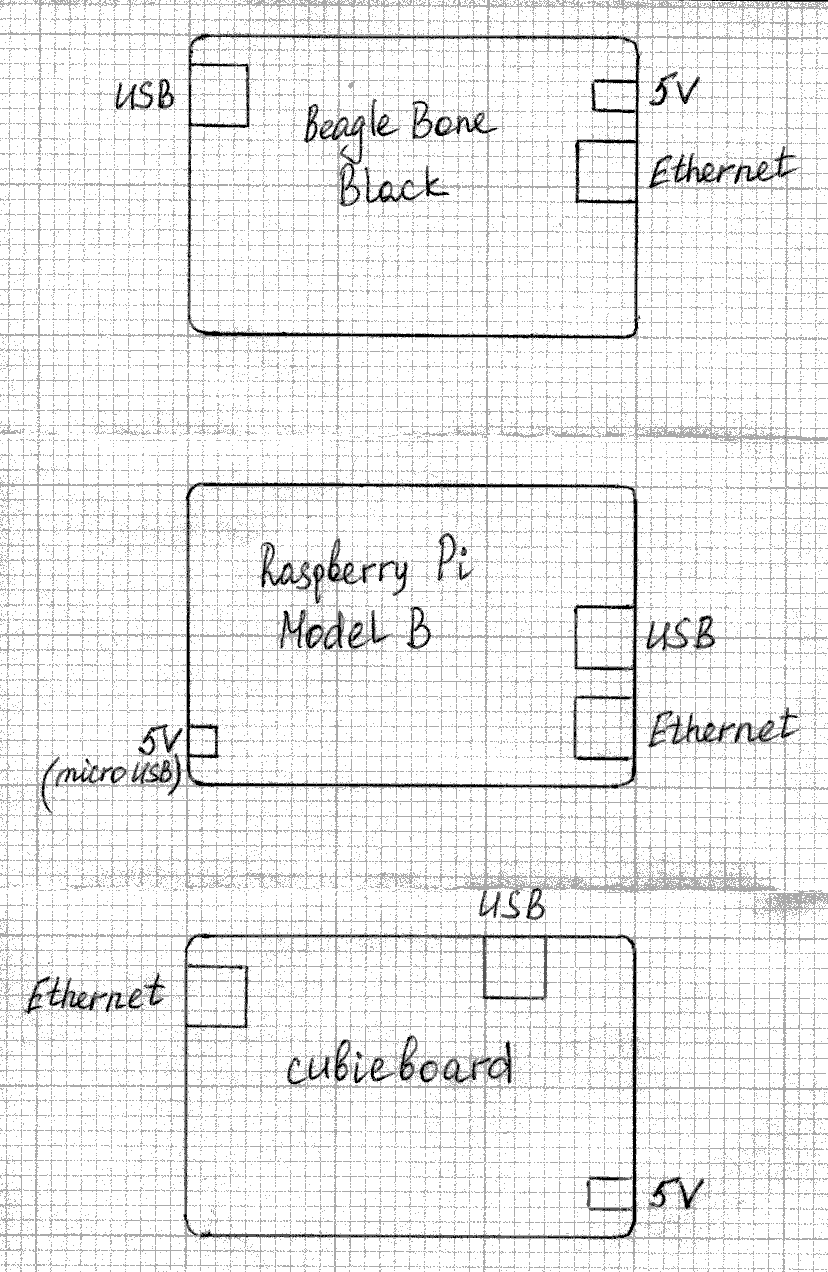 USB
5V
Beagle Bone
Black
Ethernet
Raspberry Pi
Model B
USB
Ethernet
5V
(micro USB)
USB
Ethernet
cubieboard
5V